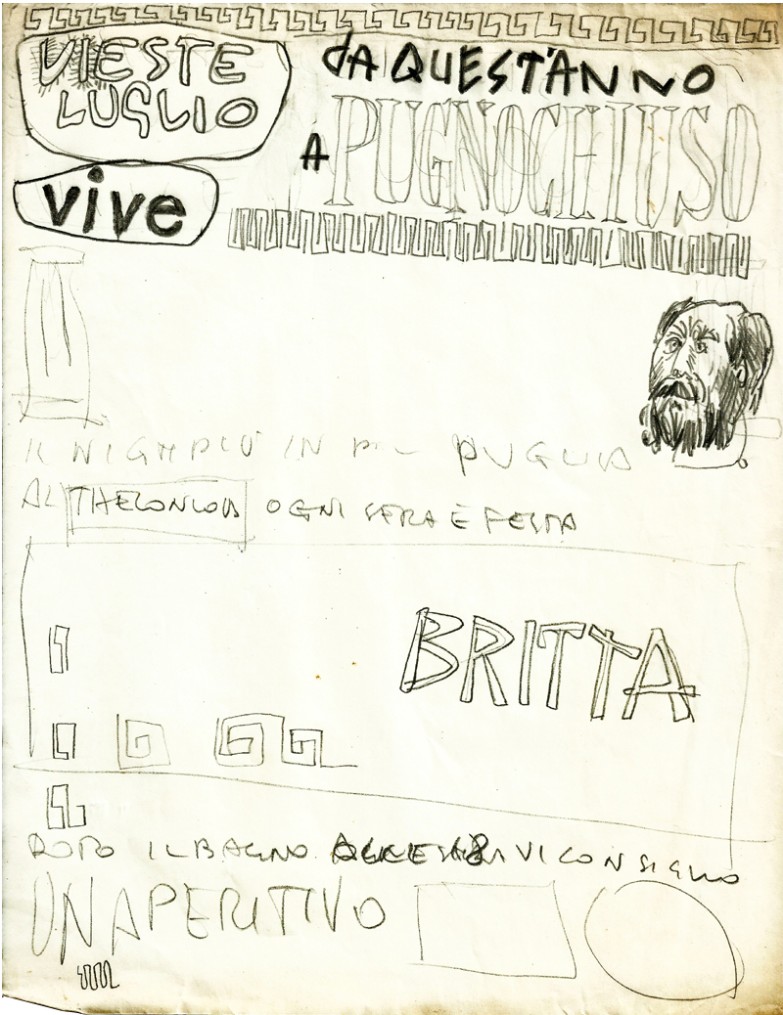 VIESTE
LUGLIO
vive
dA QUEST'ANNO
A PUGNOCHIUSO
IL NIGHT PIÙ IN PUGLIA
AL OGNI SERA È FESTA
BRITTA
DOPO IL BAGNO VI CONSIGLIO
UN APERITIVO